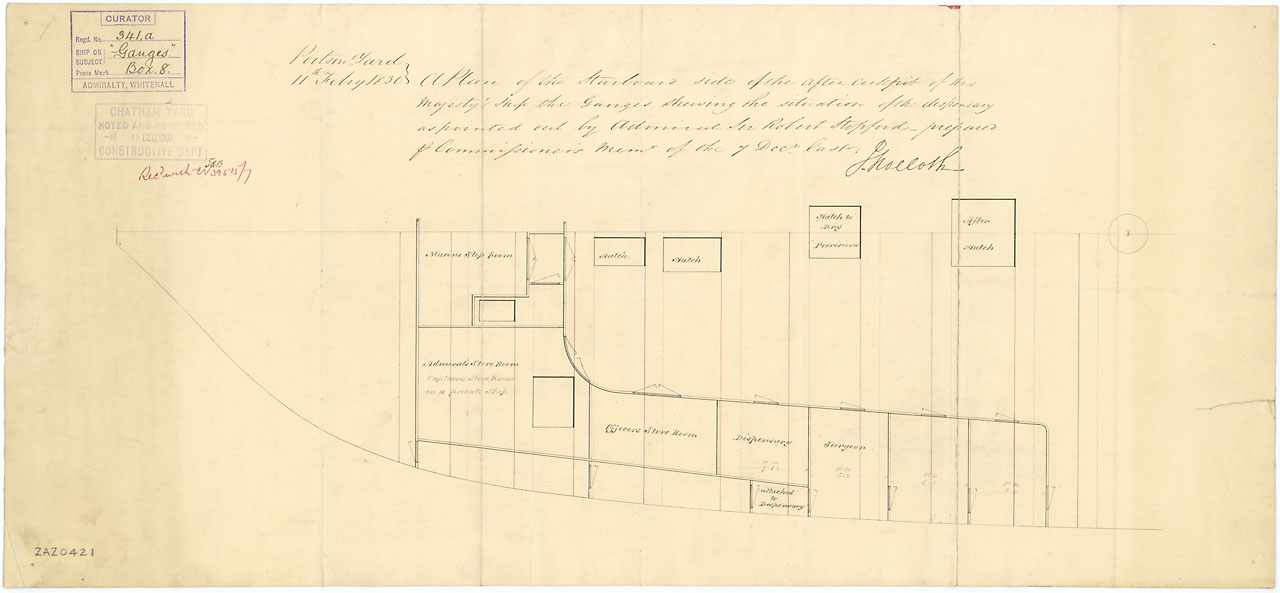 CURATOR
Regd. No. 341,a
SHIP OR SUBJECT: "Ganges"
Press Mark Box 8.
ADMIRALTY, WHITEHALL
CHATHAM YARD
NOTED AND
DEC
CONSTRUCTIVE DEPT
Portsmo Yard
11th Feby 1830
A Plan of the Starboard side of the after cockpit of His
Majesty's Ship the Ganges shewing the situation of the dispensary
as pointed out by Admiral Sir Robert Stopford - prepared
Commissioner's Memo of the 7 Decr last.
Marine Slop Room
Hatch.
Hatch
Hatch to
Dry
Provisions
After
Hatch
Admiral's Store Room
Captains Store Room
in a private Ship
Officers Store Room
Dispensary
Surgeon
attached
to
Dispensary
ZAZ0421